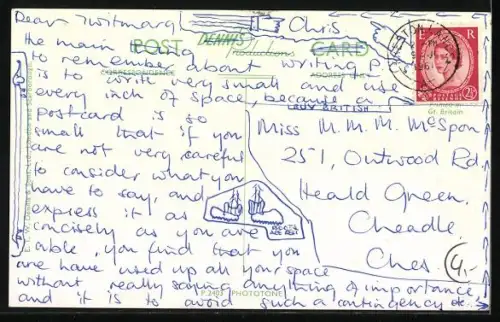 Dear Twitmarg
Chris
the main thing
POST
DENNIS
Productions
CARD
to remember about writing P.
CORRESPONDENCE
ADDRESS
is to write very small and use
every inch of space, because a
BUY BRITISH
postcard is so
small that if you
are not very careful
to consider what you
have to say, and
express it as
concisely as you are
able, you find that you
are have used up all your space
without really saying anything of importance,
and it is to avoid such a contingency etc.
P.3403 PHOTOTONE
E R
2½
Printed in
Gt. Britain
Miss M. M. M. McSpon
251, Outwood Rd.
Heald Green,
Cheadle,
Ches.
4,-
BOOTS
ARE BEST